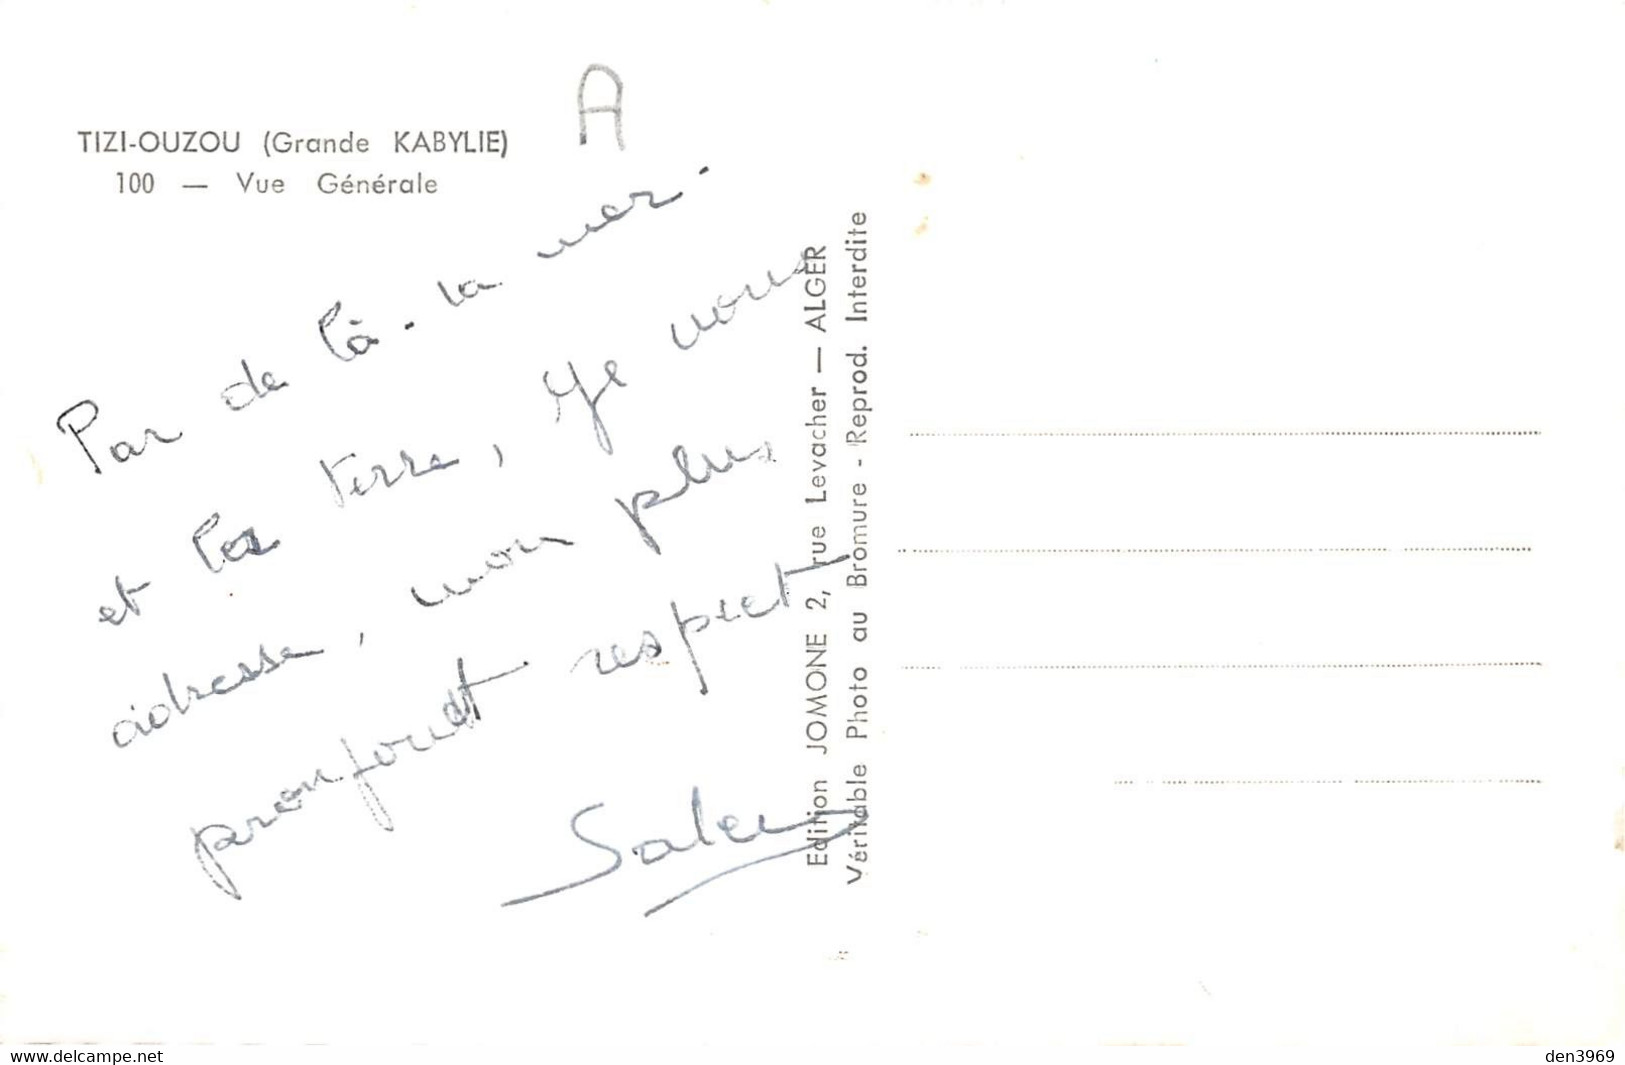 A
TIZI-OUZOU (Grande KABYLIE)
100 — Vue Générale
Par de là. la mer.
et la terre, Je vous
adresse, mon plus
pronfount respect
Salem
Edition JOMONE 2, rue Levacher — ALGER
Véritable Photo au Bromure - Reprod. Interdite
www.delcampe.net
den3969